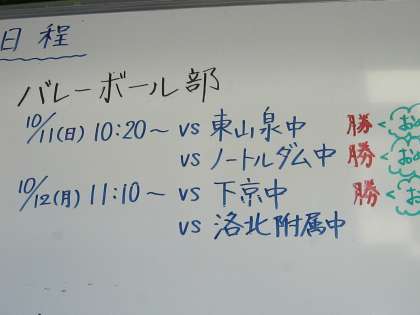 日程
バレーボール部
10/11(日) 10:20～ vs 東山泉中 勝 お
vs ノートルダム中 勝 お
10/12(月) 11:10～ vs 下京中 勝 お
vs 洛北附属中